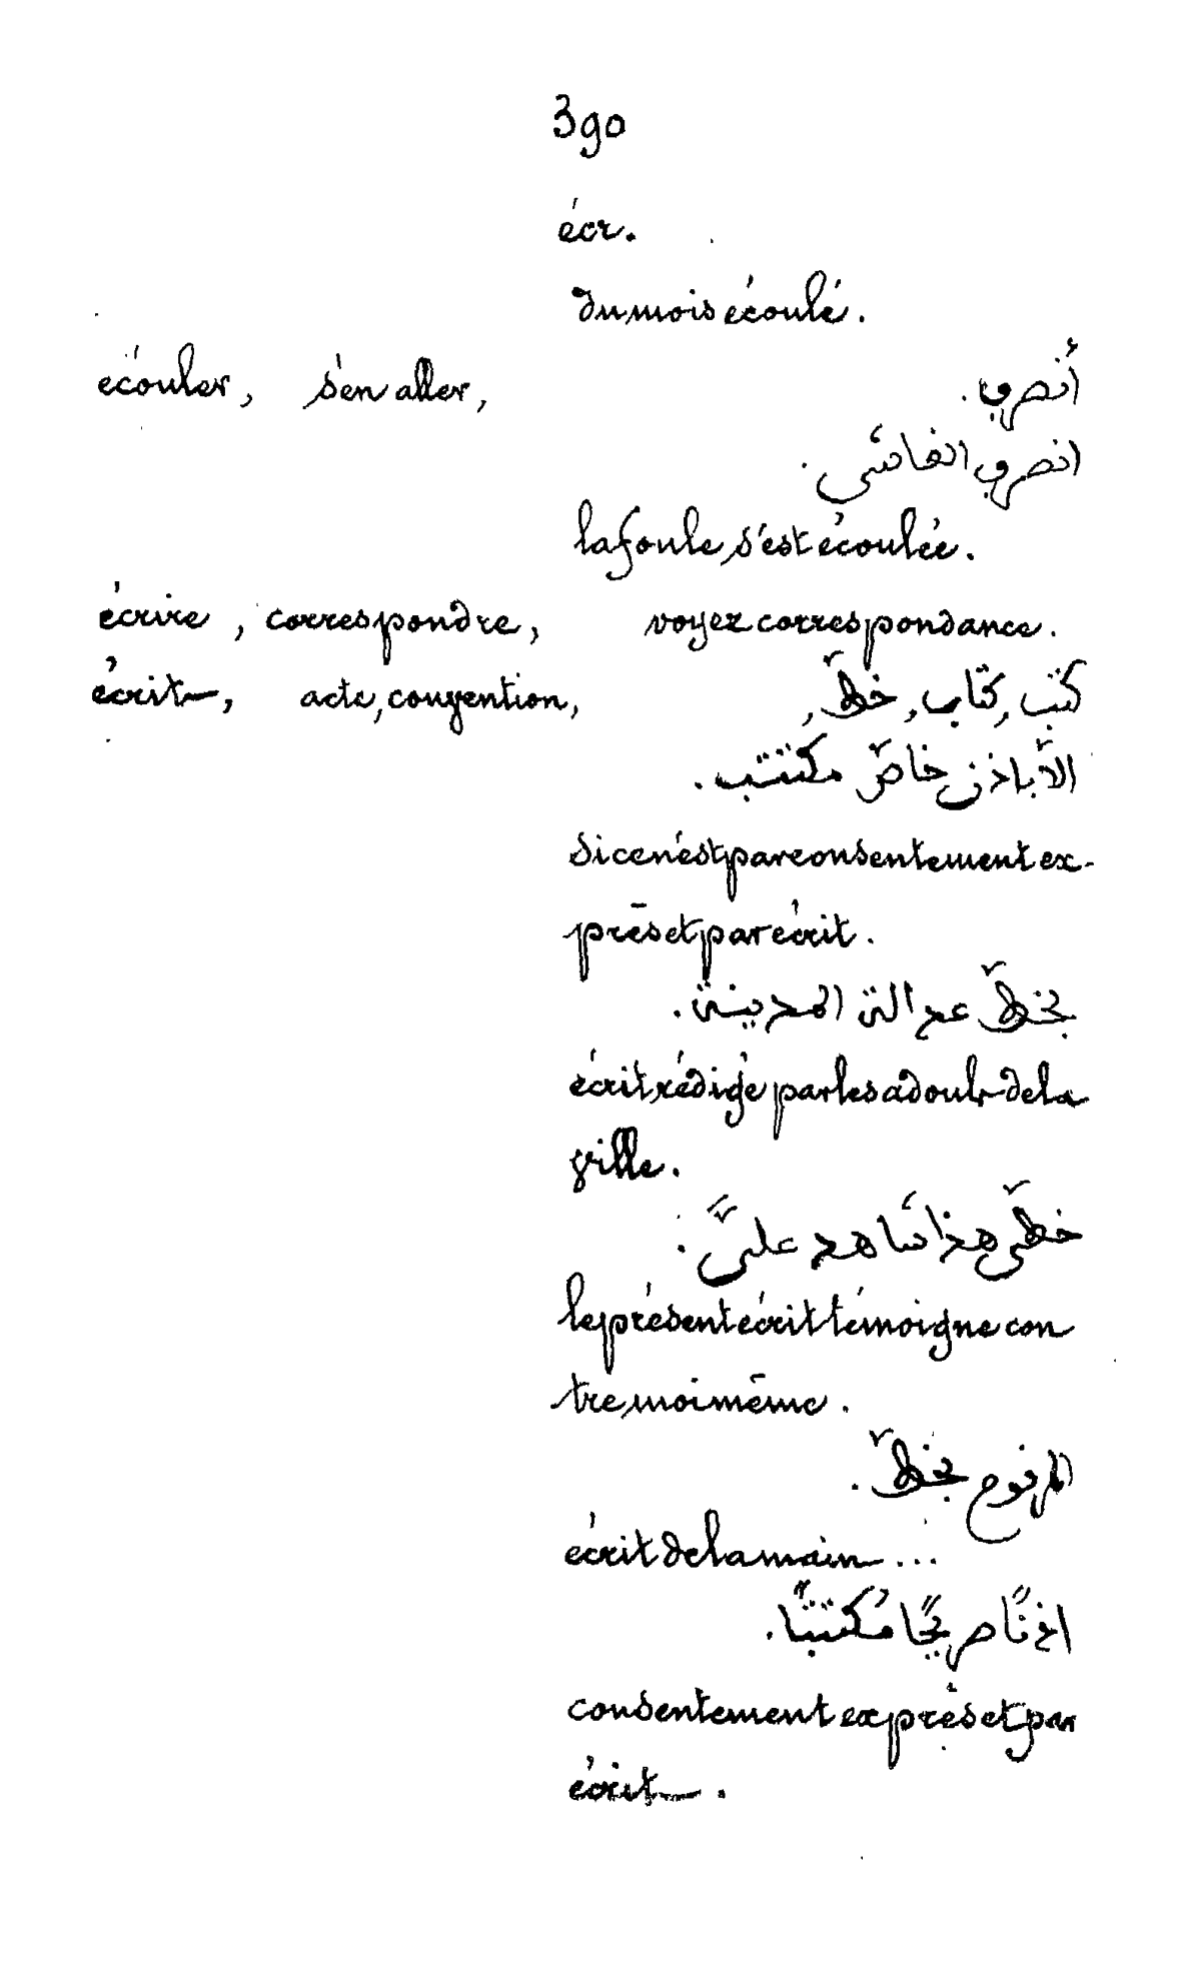 390
écr.
du mois écoulé.
écouler, s'en aller, أنصرف.
انصرف الغاشي.
la foule s'est écoulée.
écrire, correspondre, voyez correspondance.
écrit, acte, convention, كتب, كتاب, خطّ,
الاّ باذن خاصّ مكتتب.
si ce n'est par consentement ex-
près et par écrit.
بخطّ عدالة المدينة.
écrit rédigé par les adouls de la
ville.
خطّي هذا شاهد عليَّ.
le présent écrit témoigne con
tre moi même.
بخطّ.
écrit de la main...
اذنًا صريحًا مُكتتبًا.
consentement exprès et par
écrit.